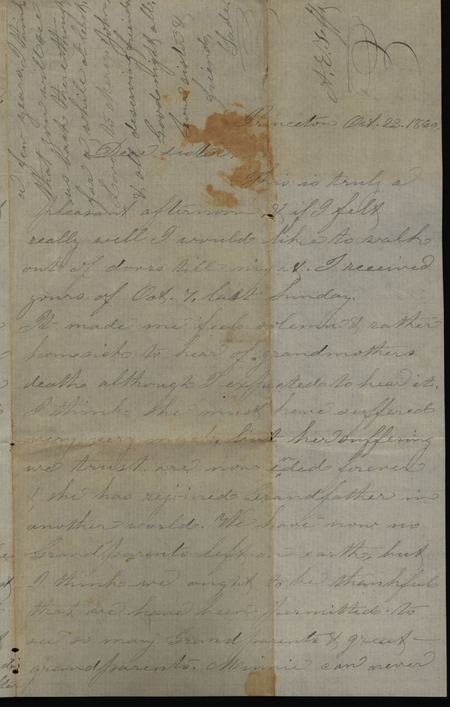 Princeton Oct. 22. 1860.
Dear sister,
This is truly a
pleasant afternoon, & if I felt
really well I would like to walk
out of doors till night. I received
yours of Oct. 7, last Sunday.
It made me feel solemn & rather
homesick to hear of grandmothers
death although I expected to hear it.
I think she must have suffered
very very much, but her suffering
we trust are now ended forever
& she has rejoined Grandfather in
another world. We have now no
Grandparents left on earth, but
I think we ought to be thankful
that we have been permitted to
see so many Grandparents & great-
grandparents. Minnie can never
a few years, I think
that you will see
us back there
for a while at least.
Love to
& all deserving friends
Good night all.
Your sister &
friend,